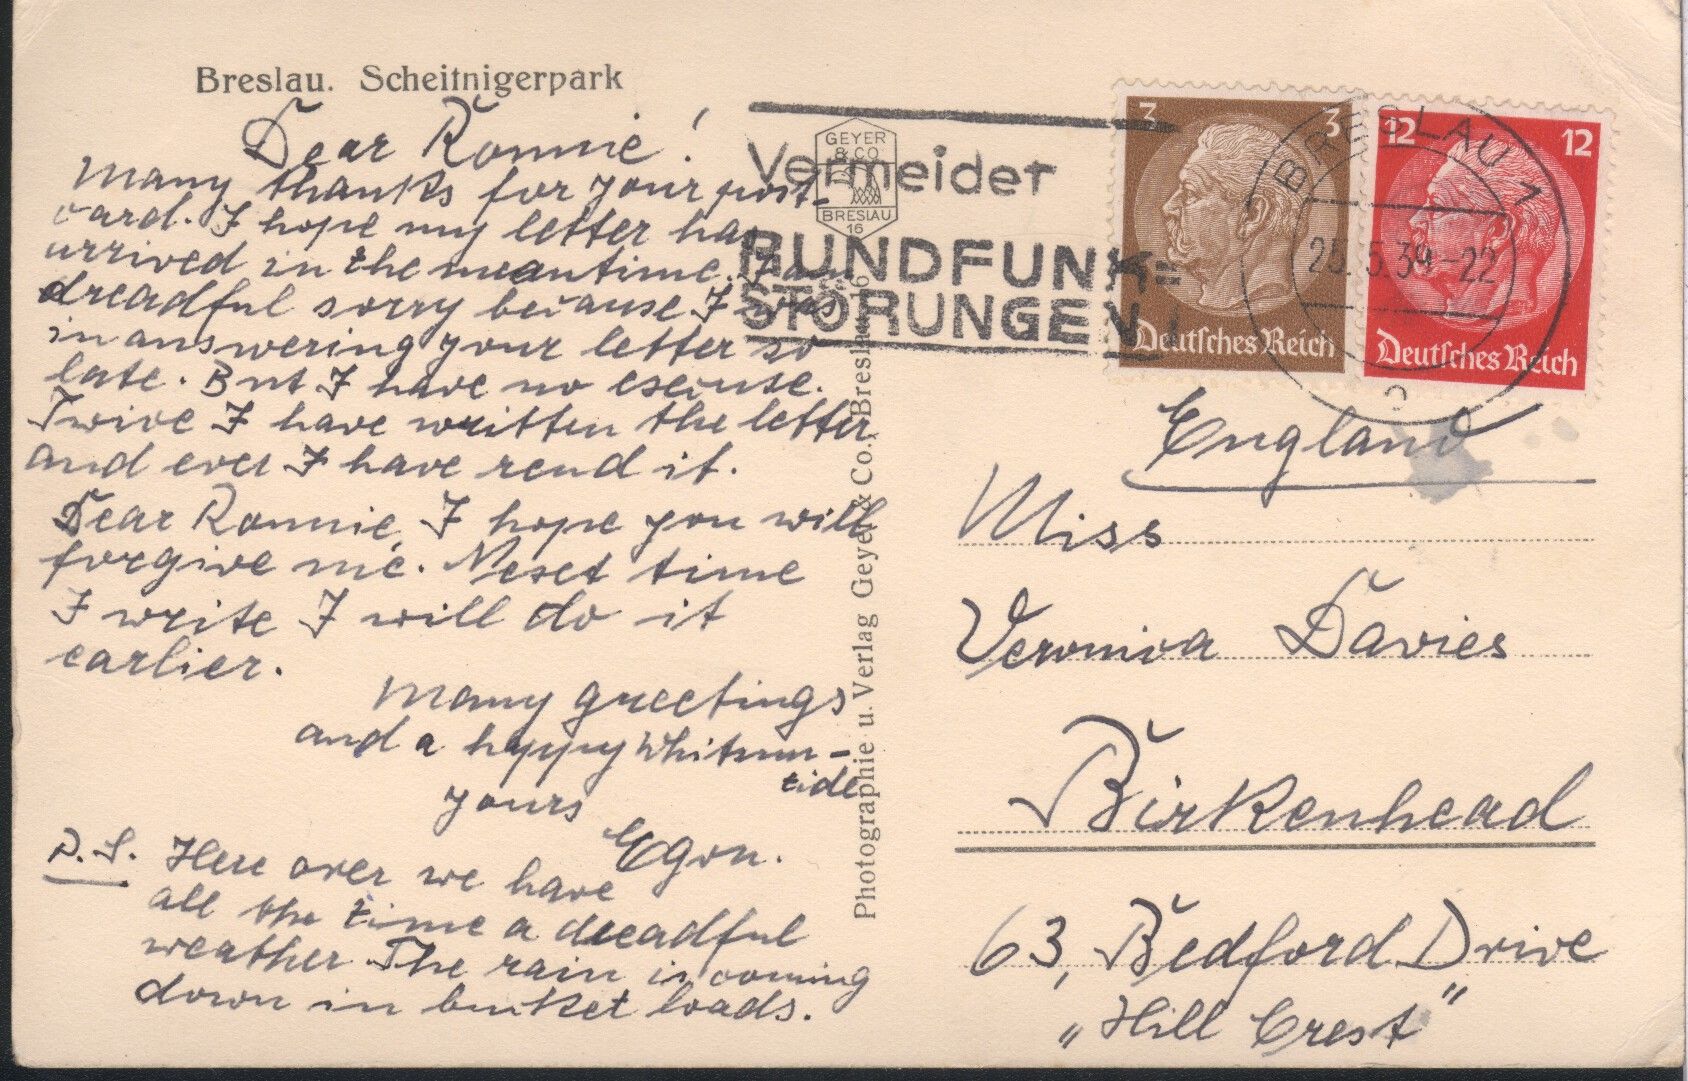 Breslau. Scheitnigerpark
Dear Ronnie!
Many thanks for your post-
card. I hope my letter has
arrived in the meantime. I am
dreadful sorry because I was
in answering your letter so
late. But I have no excuse.
Twice I have written the letter
and ever I have rend it.
Dear Ronnie, I hope you will
forgive me. Next time
I write I will do it
earlier.
Many greetings
and a happy Whitsun-
tide
yours
Egon.
P.S. Here over we have
all the time a dreadful
weather. The rain is coming
down in bucket loads.
GEYER
& CO
BRESLAU
16
Photographie u. Verlag Geyer & Co., Breslau 16
Vermeidet
RUNDFUNK=
STÖRUNGEN!
3 3
Deutsches Reich
12 12
Deutsches Reich
BRESLAU 1
25.5.39.-22
England
Miss
Veronica Davies
Birkenhead
63, Bedford Drive
„Hill Crest"